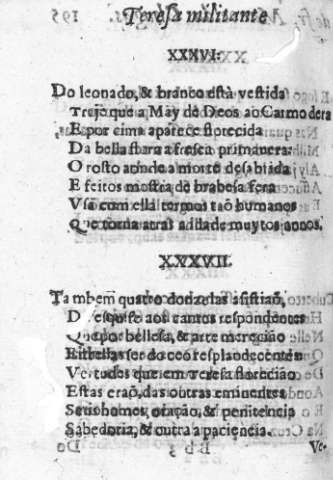 Teresa militante 195
XXXVI.
Do leonado, & branco està vestida
Trajo que a May de Deos ao Carmo dera
E por cima aparece florecida
Da bella flor a fresca primavera:
O rosto aonde a morte desabrida
E feitos mostra de brabesa fera
Usa com ella termos taõ humanos
Que torna atras a idade muytos annos.
XXXVII.
Tambem quatro donzelas assistiaõ,
D esquife aos cantos respondentes
Que por bellesa, & arte mereciaõ
Estrellas ser do ceo resplandecentes
Vertudes que em Teresa floreciaõ
Estas eraõ, das outras eminentes
Seus nomes, oraçaõ, & penitencia
Sabedoria, & outra a paciencia.
Bb 3 Ve-